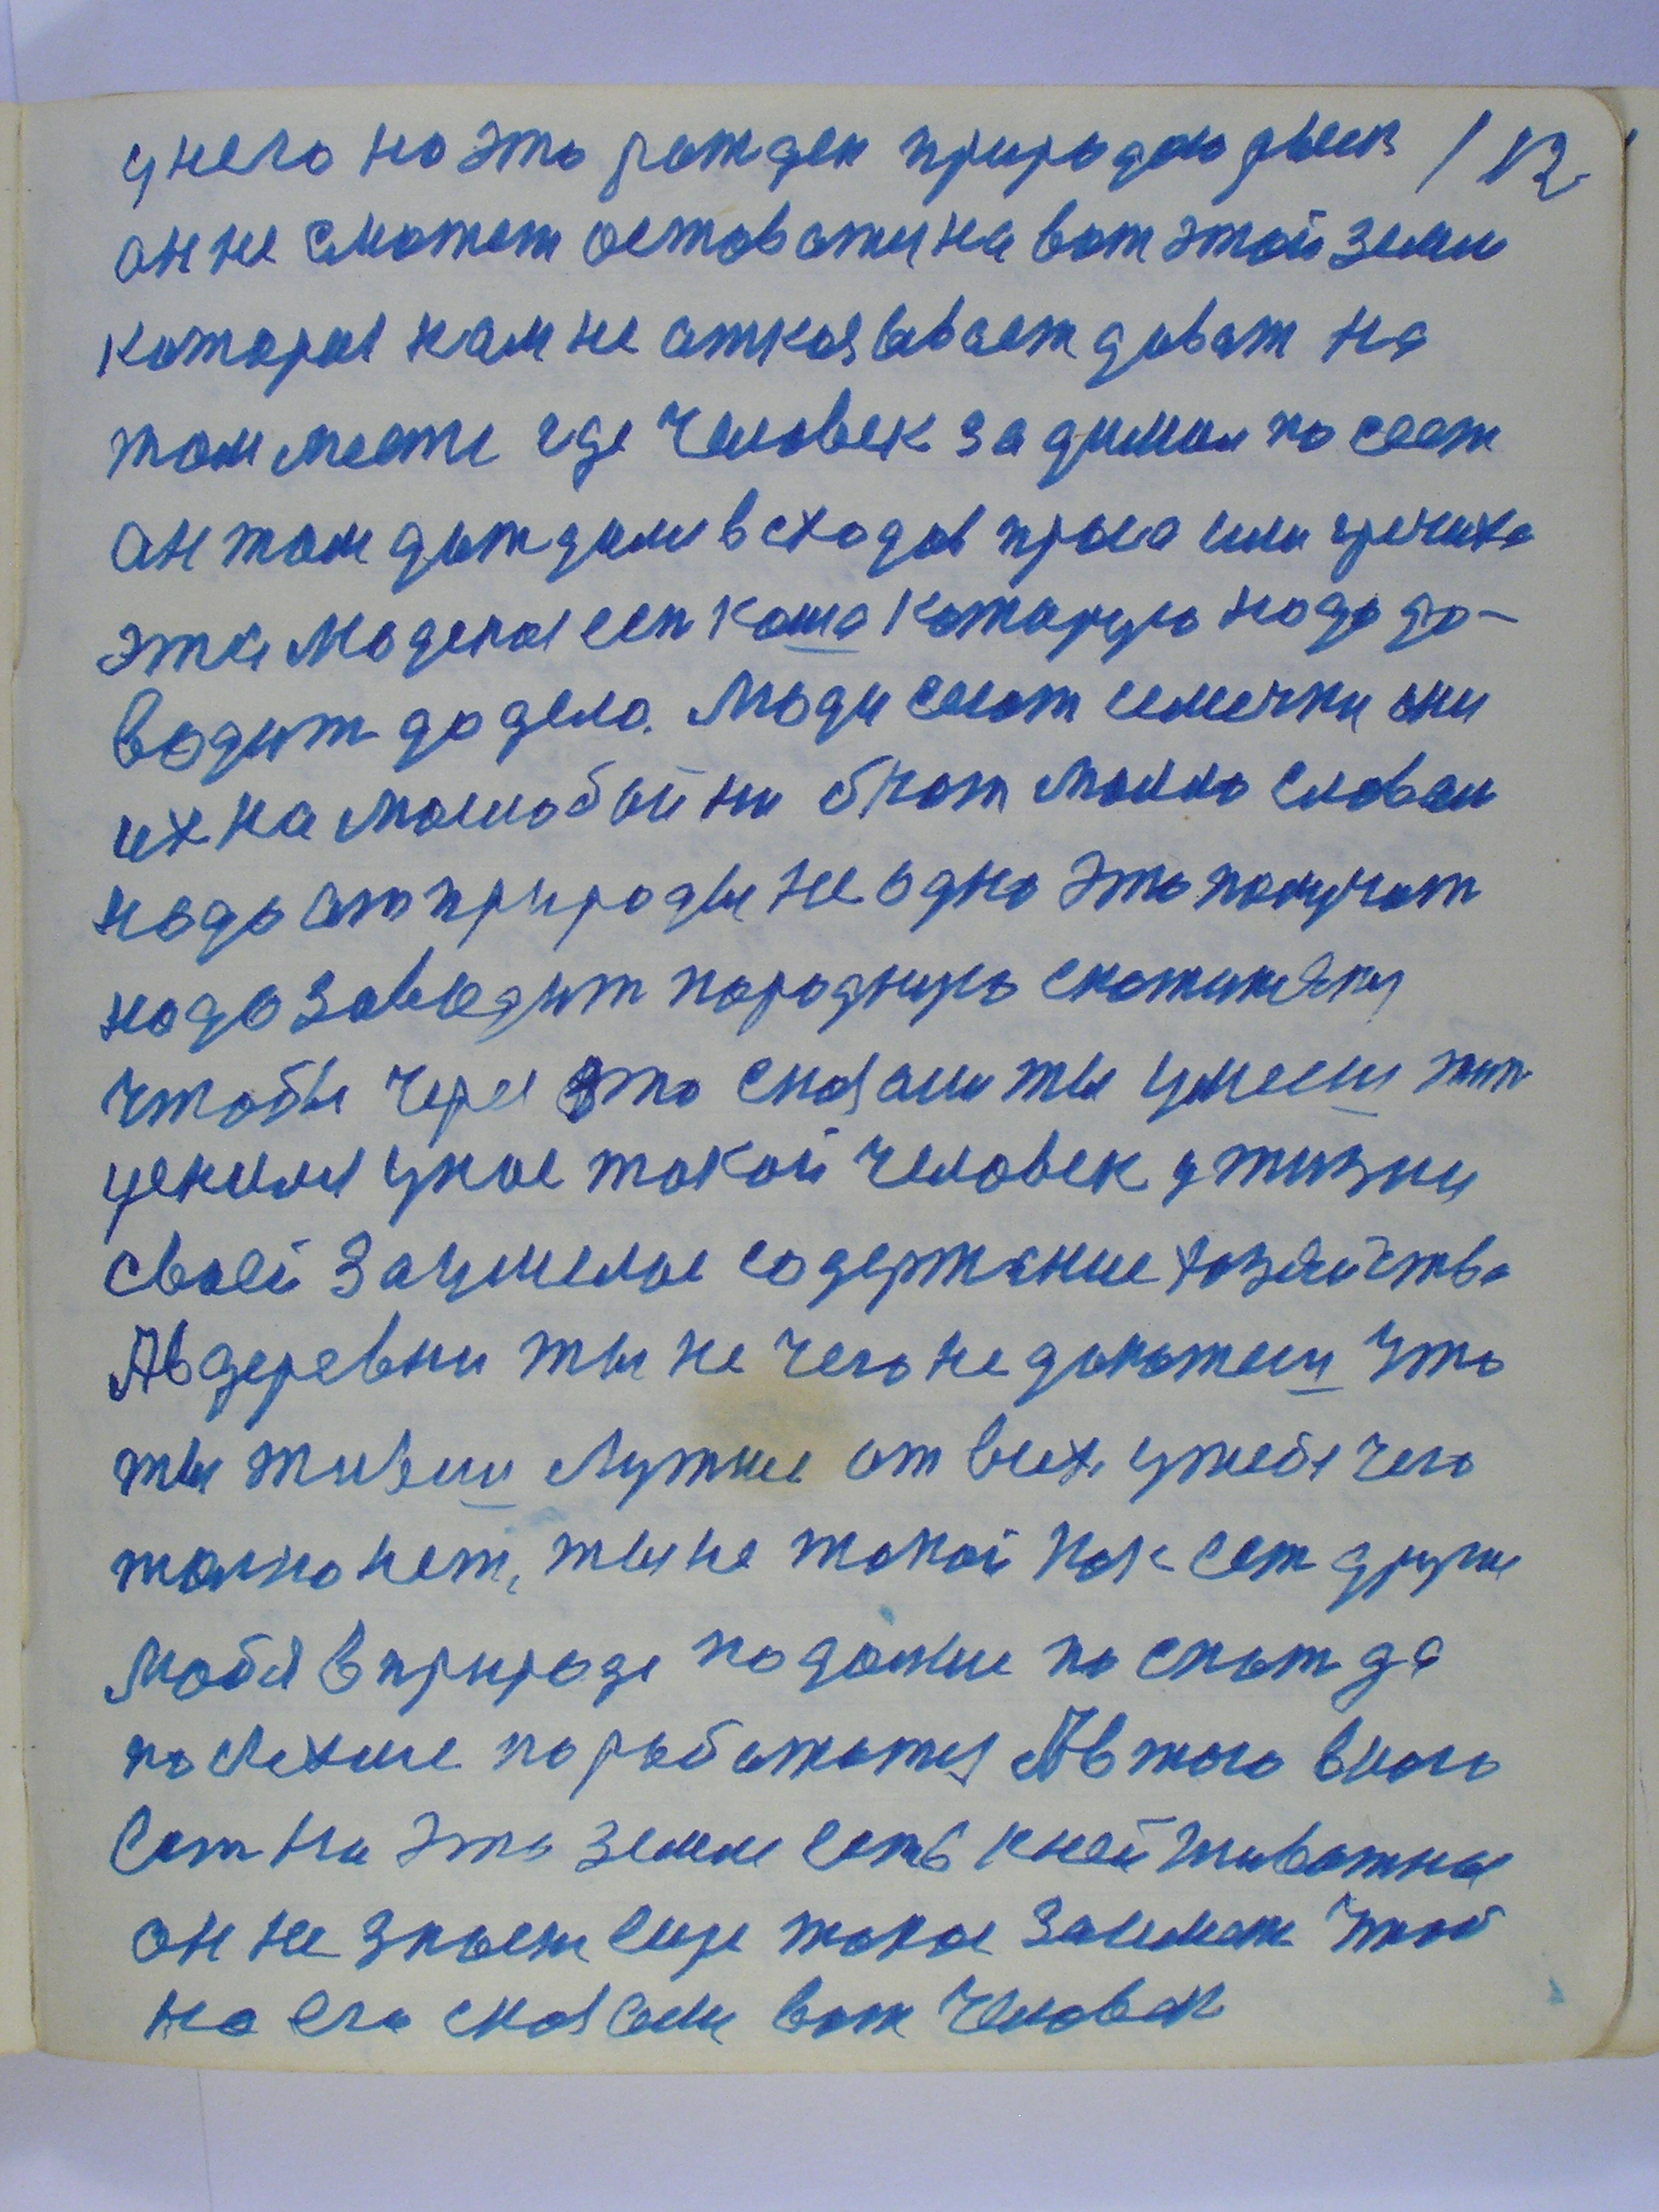 у него на это рожден природою 112
он не сможет остоватц на вот этой земи
которая нам не отказывает дават на
том месте где человек задумал посеет
он там дождали всходов проса или гречиха
эта моделоя есп каша которую надо до-
водит до дела. Люди сеют семечки они
их на маслобойни бъют масло словом
надо от природы не одно это получат
надо заводит породную скотинёнку
чтобы через это сказали ты умееш жит
ценился у нас такой человек у жизни
своей за умелое содержание хозяйства
А в деревни ты не чего не докажеш что
ты живеш лутше от всех у тебя чего
толко нет, ты не такой как сет други
любя в природе подолше поспат да
полехше поработатц А в того в кого
ест на это земле есть к ней животная
он не знает еще такое занимат чтоб
на его сказали вот человек